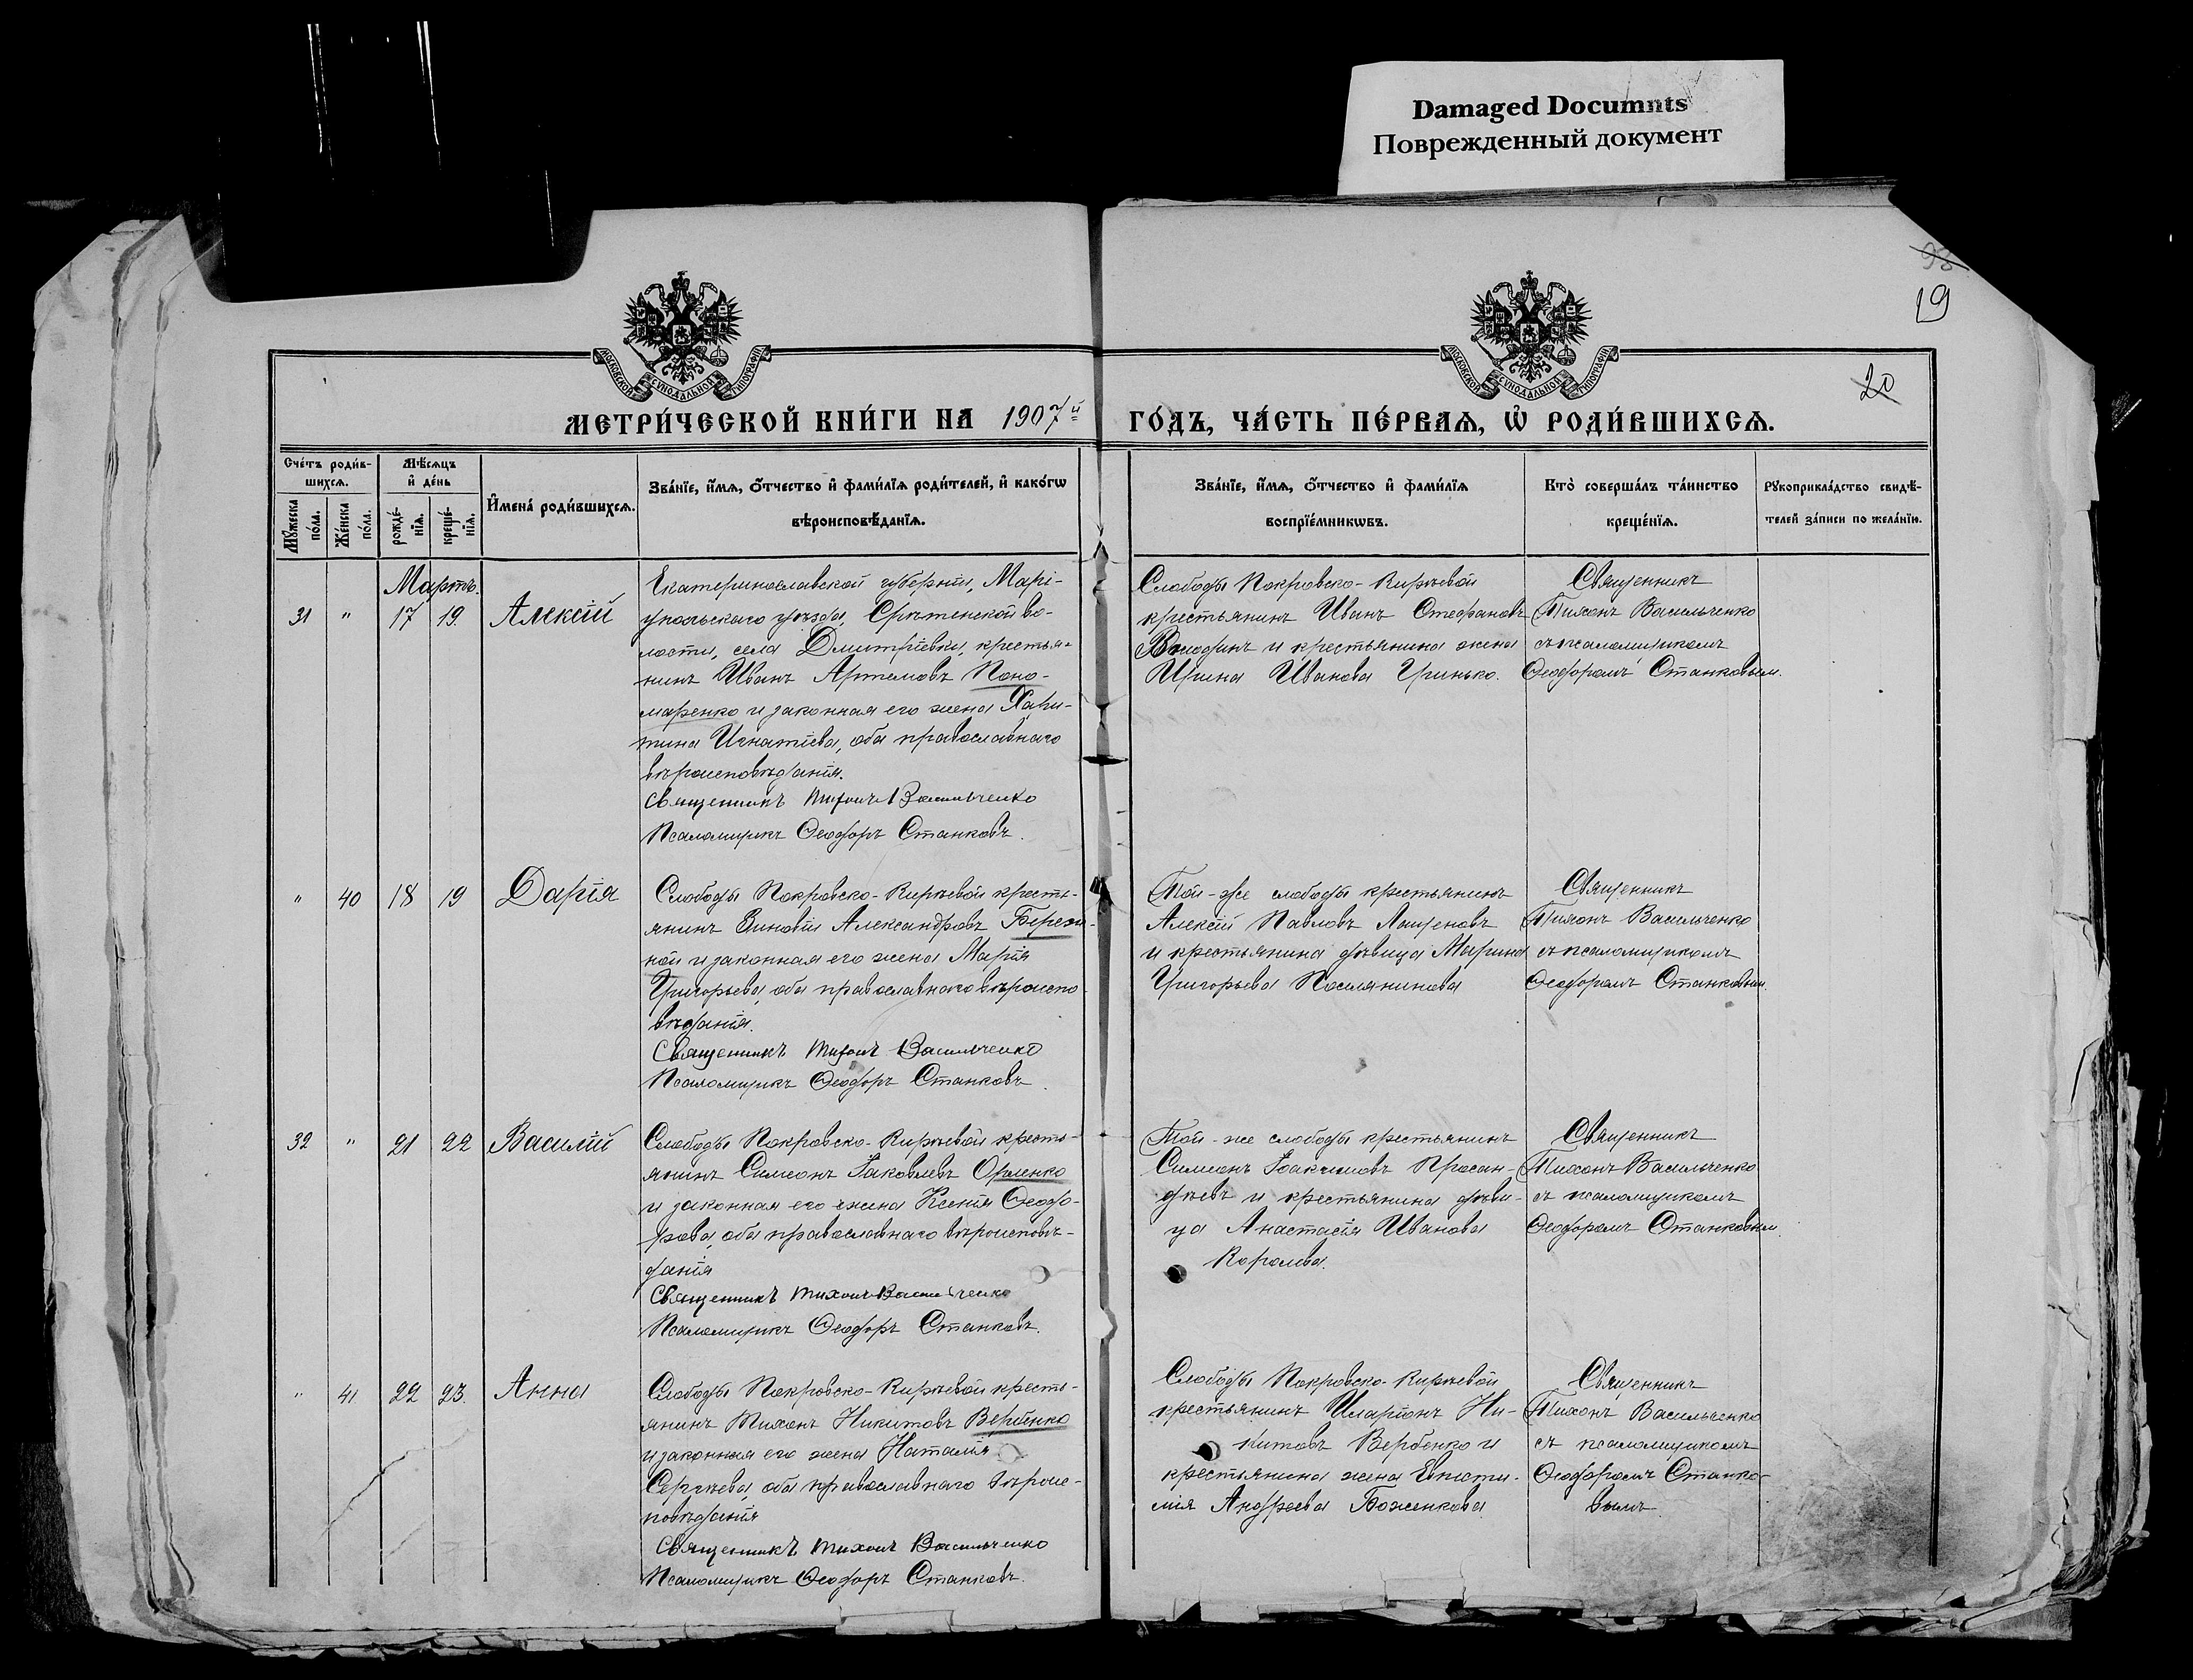 Damaged Documnts
Поврежденный документ
93
19
20
МОСКОВСКОЙ СѴНОДАЛЬНОЙ ТИПОГРАФІИ
МОСКОВСКОЙ СѴНОДАЛЬНОЙ ТИПОГРАФІИ
МЕТРИ́ЧЕСКОЙ КНИ́ГИ НА 1907й ГО́ДЪ, ЧА́СТЬ ПЕ́РВАѦ, Ѡ҆ РОДИ́ВШИХСѦ.
Сче́тъ роди́в-
шихсѧ.
Мꙋ́жеска по́ла.
Же́нска по́ла.
Мѣ́сѧцъ
и҆ де́нь
рожде́-
нїѧ.
креще́-
нїѧ.
И҆мена̀ роди́вшихсѧ.
Зва́нїе, и҆́мѧ, ѻ҆́тчество и҆ фами́лїѧ роди́телей, и҆ како́гѡ
вѣроисповѣ́данїѧ.
Зва́нїе, и҆́мѧ, ѻ҆́тчество и҆ фами́лїѧ
воспрїе́мникѡвъ.
Кто̀ соверша́лъ та́инство
креще́нїѧ.
Рꙋкоприкла́дство свидѣ́-
телей за́писи по жела́нїю.
Мартъ.
31 " 17 19. Алексій
Екатеринославской губерніи, Марі-
упольскаго уѣзда, Срѣтенской во-
лости, села Дмитріевки, крестья-
нинъ Иванъ Артемовъ Поно-
маренко и законная его жена Хари-
тина Игнатіева, оба православнаго
вѣроисповѣданія.
Священникъ Тихонъ Васильченко
Псаломщикъ Ѳеодоръ Станковъ.
Слободы Покровско-Кирѣевой
крестьянинъ Иванъ Стефановъ
и крестьянина жена
Ирина Иванова Гринько.
Священникъ
Тихонъ Васильченко
съ псаломщикомъ
Ѳеодоромъ Станковым.
" 40 18 19 Дарія
Слободы Покровско-Кирѣевой кресть-
янинъ Зиновій Александровъ
ной и законная его жена Марія
Григорьева, оба православнаго вѣроиспо-
вѣданія.
Священникъ Тихонъ Васильченко
Псаломщикъ Ѳеодоръ Станковъ.
Той-же слободы крестьянинъ
Алексій Павловъ
и крестьянина дѣвица Марина
Григорьева Поселянинова
Священникъ
Тихонъ Васильченко
съ псаломщикомъ
Ѳеодоромъ Станковым.
32 " 21 22 Василій
Слободы Покровско-Кирѣевой кресть-
янинъ Симеонъ Іаковлевъ
и законная его жена Ксенія Ѳеодо-
рова, оба православнаго вѣроисповѣ-
данія
Священникъ Тихонъ Васильченко
Псаломщикъ Ѳеодоръ Станковъ.
Той-же слободы крестьянинъ
Симеонъ Іоакимовъ Просан-
дѣевъ и крестьянина дѣви-
ца Анастасія Иванова
Королева.
Священникъ
Тихонъ Васильченко
съ псаломщикомъ
Ѳеодоромъ Станковым.
" 41 22 23. Анна
Слободы Покровско-Кирѣевой кресть-
янинъ Тихонъ Никитовъ Вербенко
и законная его жена Наталія
Сергѣева, оба православнаго вѣроис-
повѣданія
Священникъ Тихонъ Васильченко
Псаломщикъ Ѳеодоръ Станковъ.
Слободы Покровско-Кирѣевой
крестьянинъ Иларіонъ Ни-
китовъ Вербенко и
крестьянина жена Евѳи-
мія Андреева Боженкова
Священникъ
Тихонъ Васильченко
съ псаломщикомъ
Ѳеодоромъ Станко-
вымъ